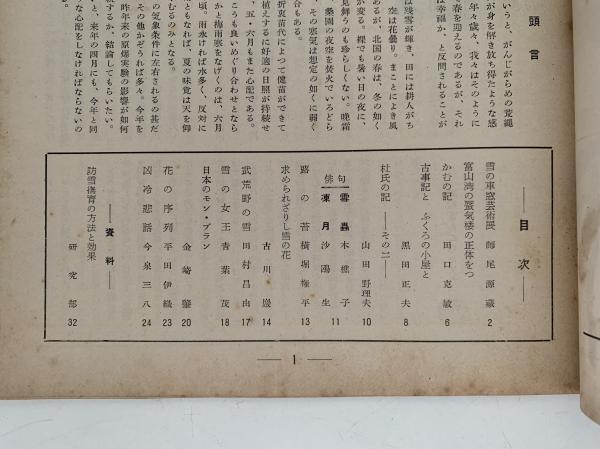 頭言
いうと、がんじがらめの荒縄
が身を解き放ち得たような感
年々歳々、我々はそのように
春を迎えるのであるが、それ
は幸福か、と反問されることが
は残雪が輝き、田には耕人がち
空は花曇り。まことによき風
あるが、北国の春は、冬の如く
が変る。裸でも暑い日の夜に、
見舞うのも珍らしくない。晩霜
桑園の夜空を焚火でいろどら
、その寒気は想定の如くに弱く
合もある。
折衷苗代によつて健苗ができて
植えするに好適の日照が持続せ
、五・六月もまた心配である。
こうも良いめぐり合わせとなら
かと梅雨寒をなげくのは、六月
頃。雨氷ければ水多く、反対に
ともなれば、夏の味覚は天を仰
むるのみとなる。
の気象条件に左右されるの甚だ
、その他かぞうれば多々。今年を
昨年来の原爆実験の影響が如何
するか、結論してもらいたい。
と、来年の四月にも、今年と同
な心配をしなければならないの
る。
目次
雪の車窓芸術展 師尾源蔵 2
富山湾の蜃気楼の正体をつ
かむの記 田口克敏 6
古事記と ふくろの小屋と
黒田正夫 8
杜氏の記 ―その二―
山田野理夫 10
俳句
雪蟲 木樵子
凍月 沙陽生 11
蕗の苔 横堀権平 13
求められざりし雪の花
古川巌 14
武荒野の雪 田村昌由 17
雪の女王 青葉茂 18
日本のモン・ブラン
金崎肇 20
花の序列 平田伊織 23
凶冷悲話 今泉三八 24
―資料―
防雪撫育の方法と効果
研究部 32
― 1 ―